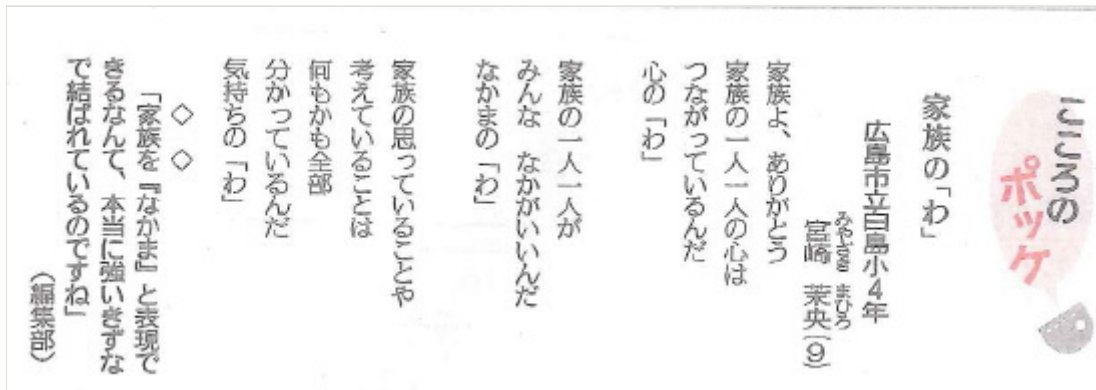 こころの
ポッケ
家族の「わ」
広島市立白島小4年
みやざき まひろ
宮崎 茉央(9)
家族よ、ありがとう
家族の一人一人の心は
つながっているんだ
心の「わ」
家族の一人一人が
みんな なかがいいんだ
なかまの「わ」
家族の思っていることや
考えていることは
何もかも全部
分かっているんだ
気持ちの「わ」
◇ ◇
「家族を『なかま』と表現で
きるなんて、本当に強いきずな
で結ばれているのですね」
(編集部)